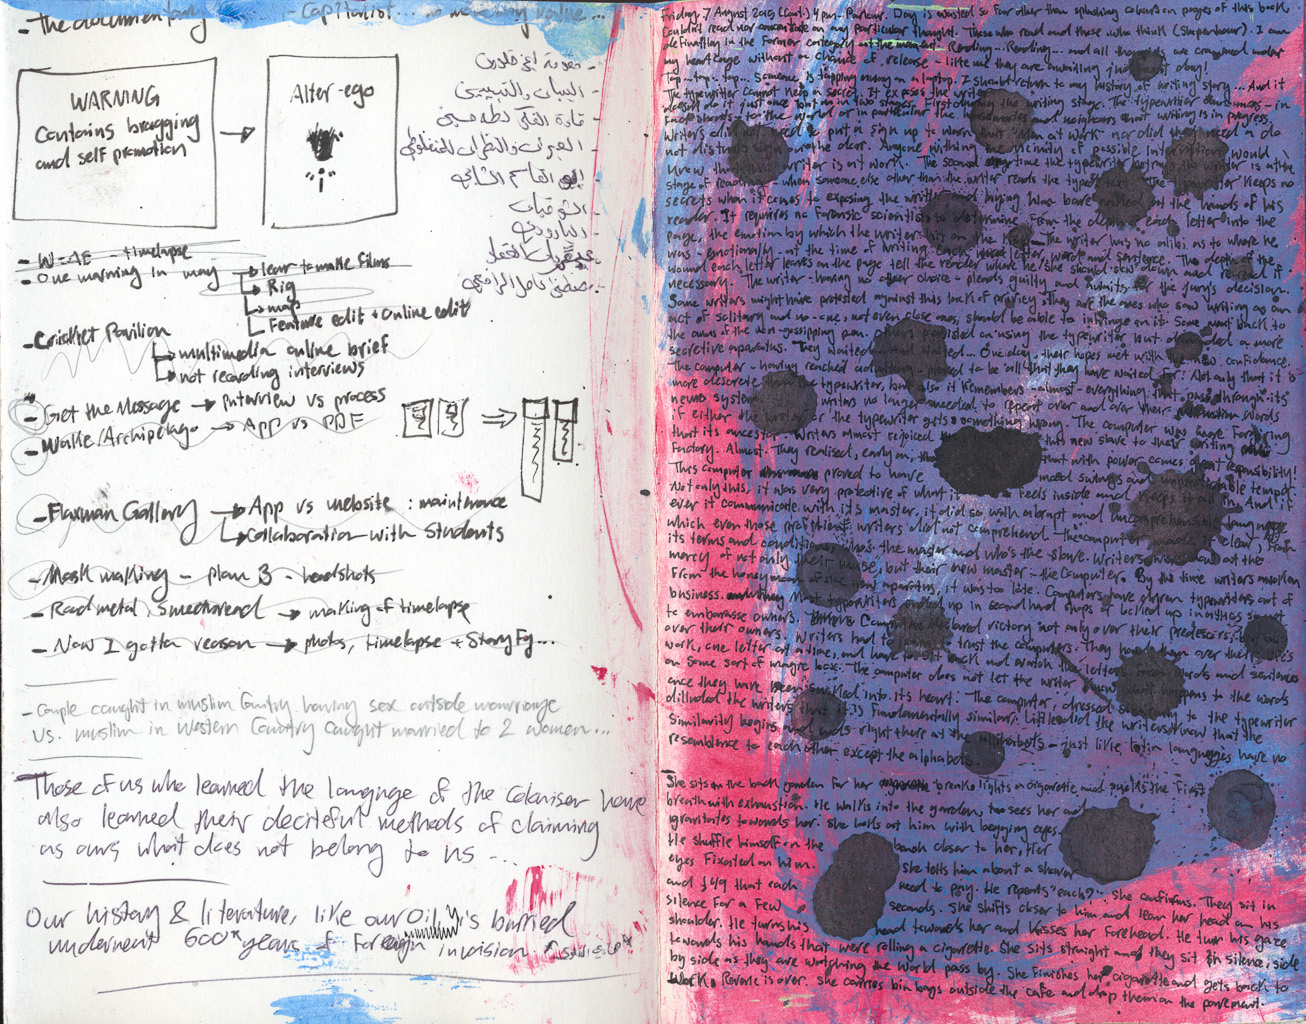 - The documentary
- Capitalist...
WARNING
Contains bragging
and self promotion
Alter-ego
- مقدمة ابن خلدون
- البيان والتبيين
- قادة الفكر لطه حسين
- العبرات والنظرات للمنفلوطي
- ابو القاسم الشابي
- الشوقيات
- البارودي
- عبقريات العقاد
- مصطفى كامل الرافعي
- timelapse
- One warning in may
learn to make films
Rig
map
Feature edit + online edit
- Cricket Pavilion
multimedia online brief
not recording interviews
- Get the Message → Interview vs process
- Wake/Archipelago → App vs PDF
- Flaxman Gallery → App vs website : maintenance
Collaboration with Students
- Mask making - plan B - headshots
- Road metal, Sweetbread → making of timelapse
- Now I gotta reason → photos, timelapse + Storify...
- Couple caught in muslim Country having sex outside marriage
vs. muslim in Western Country caught married to 2 women...
Those of us who learned the language of the Coloniser have
also learned their deceitful methods of claiming
as ours what does not belong to us...
Our history & literature, like our Oil, is burried
underneath 600 years of Foreign invasion.
Friday, 7 August 2015 (Cont.) 4pm. Parlour. Day is wasted so far other than splashing colours on pages of this book
Couldn't read nor concentrate on any particular thought. Those who read and those who think (Shopenhaur). I am
definitely in the Former category at the moment. Reading... Reading... and all thoughts are cramped under
my heart cage without a chance of release - like me they are awaiting
Tap-tap-tap... Someone is tapping away on a laptop. I should return to my history of writing story... And it
The typewriter cannot keep a secret. It exposes the writer
does not do it just once but in two stages. First during the writing stage. The typewriter announces - in
fact shouts - to the world or in particular the and neighbours that writing is in progress.
Writers did not need to put a sign up to warn that "Men at work" nor did they need a do
not disturb sign on the door. Anyone within the vicinity of possible interruption would
know that the writer is at work. The second time the typewriter betrays the writer is at the
stage of reading - when someone else other than the writer reads the typed text. The typewriter keeps no
secrets when it comes to exposing the writer, laying him bare naked at the hands of his
reader. It requires no Forensic scientist to determine, from the depth of each letter into the
page, the emotion by which the writer hit on the keys. The writer has no alibi as to where he
was - emotionally - at the time of writing each letter, word and sentence. The depth of the
wound each letter leaves on the page tell the reader where he/she should slow down and reread if
necessary. The writer - having no other choice - pleads guilty and awaits for the jury's decision.
Some writers might have protested against this lack of privacy. They are the ones who saw writing as an
act of solitary and no-one, not even close ones, should be able to infringe on it. Some went back to
the arms of the non-gossipping pen. Others persisted on using the typewriter but demanded a more
secretive apparatus. They waited and waited... One day, their hopes met with a new confidance.
The computer - having reached adulthood - proved to be all that they have waited for. Not only that it is
more descrete than the typewriter, but also it Remembers - almost - everything that pass through its
neuro system. writers no longer needed to repeat over and over their words
if either the writer or the typewriter gets something wrong. The computer was more Forgiving
that its ancestor. Writers almost rejoiced this new slave to their writing
Factory. Almost. They realised, early on, that with power comes responsibility!
This computer proved to have mood swings and unpredictable temper.
Not only this, it was very protective of what it feels inside and keeps it all in. And if
ever it communicate with it's master, it did so with abrupt and uncomprehensible language
which even those proficient writers did not comprehend - the computer made it clear, from
its terms and conditions, who's the master and who's the slave. Writers were at the
mercy of not only their muse, but their new master - the Computer. By the time writers awoken
From the honeymoon of the new aparatus, it was too late. Computers have driven typewriters out of
business. Most typewriters ended up in second hand shops or locked up in attics so not
to embarasse owners. Computers declared victory not only over their predecessors, but also
over their owners. Writers had to learn to trust the computers. They hand them over their
work, one letter at a time, and have to sit back and watch the letters words and sentences
on some sort of magic box. The computer does not let the writer know what happens to the words
once they have been sucked into its heart. The computer, dressed similarly to the typewriter
diluded the writers that it is fundamentally similar. Little did the writers know that the
Similarity begins and ends right there at the alphabets - just like, latin languages have no
resemblance to each other except the alphabets.
She sits on the back garden for her cigarette break, lights a cigarette and pulls the first
breath with exhaustion. He walks into the garden, too, sees her and
gravitates towards her. She looks at him with begging eyes.
He shuffle himself on the bench closer to her, Her
eyes fixated on him. She tells him about a shower
and £49 that each need to pay. He repeats "each?". She confirms. They sit in
silence for a few seconds. She shifts closer to him and lean her head on his
shoulder. He turns his head towards her and kisses her forehead. He turn his gaze
towards his hands that were rolling a cigarette. She sits straight and they sit in silence, side
by side as they are watching the world pass by. She finishes her cigarette and gets back to
work. Romance is over. She carries bin bags outside the cafe and drop them on the pavement.